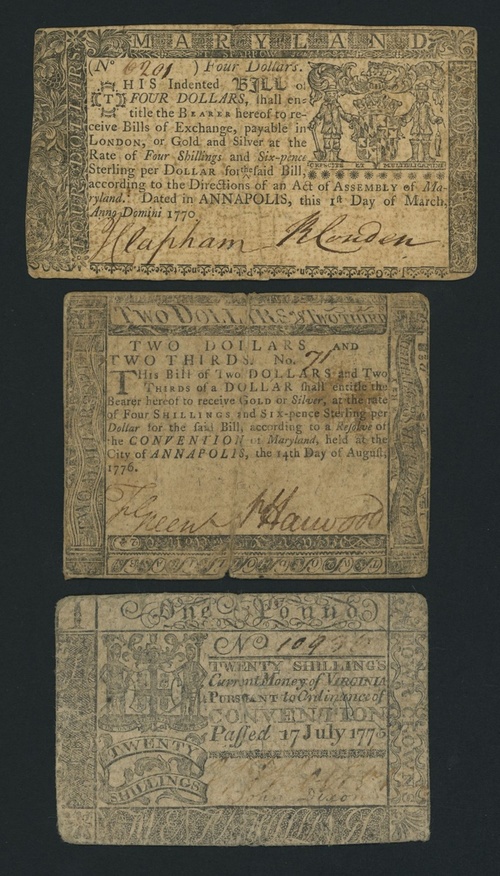 MARYLAND
FOUR DOLLARS
(No 6201 ) Four Dollars.
THIS Indented BILL of
FOUR DOLLARS, shall en-
title the BEARER hereof to re-
ceive Bills of Exchange, payable in
LONDON, or Gold and Silver at the
Rate of Four Shillings and Six-pence
Sterling per DOLLAR for the said Bill,
according to the Directions of an Act of ASSEMBLY of Ma-
ryland. Dated in ANNAPOLIS, this 1st Day of March,
Anno Domini 1770.
CRESCITE ET MULTIPLICAMINI
J Clapham R Couden
TWO DOLLARS & TWO THIRDS
TWO DOLLARS AND
TWO THIRDS. No. 71
THis Bill of Two DOLLARS and Two
THIRDS of a DOLLAR shall entitle the
Bearer hereof to receive GOLD or Silver, at the rate
of Four SHILLINGS and SIX-pence Sterling per
Dollar for the said Bill, according to a Resolve of
the CONVENTION of Maryland, held at the
City of ANNAPOLIS, the 14th Day of August,
1776.
Fr Green W Harwood
One Pound
No
TWENTY SHILLINGS
Current Money of VIRGINIA
PURSUANT to Ordinance of
CONVENTION
Passed 17 July 1775
TWENTY
SHILLINGS